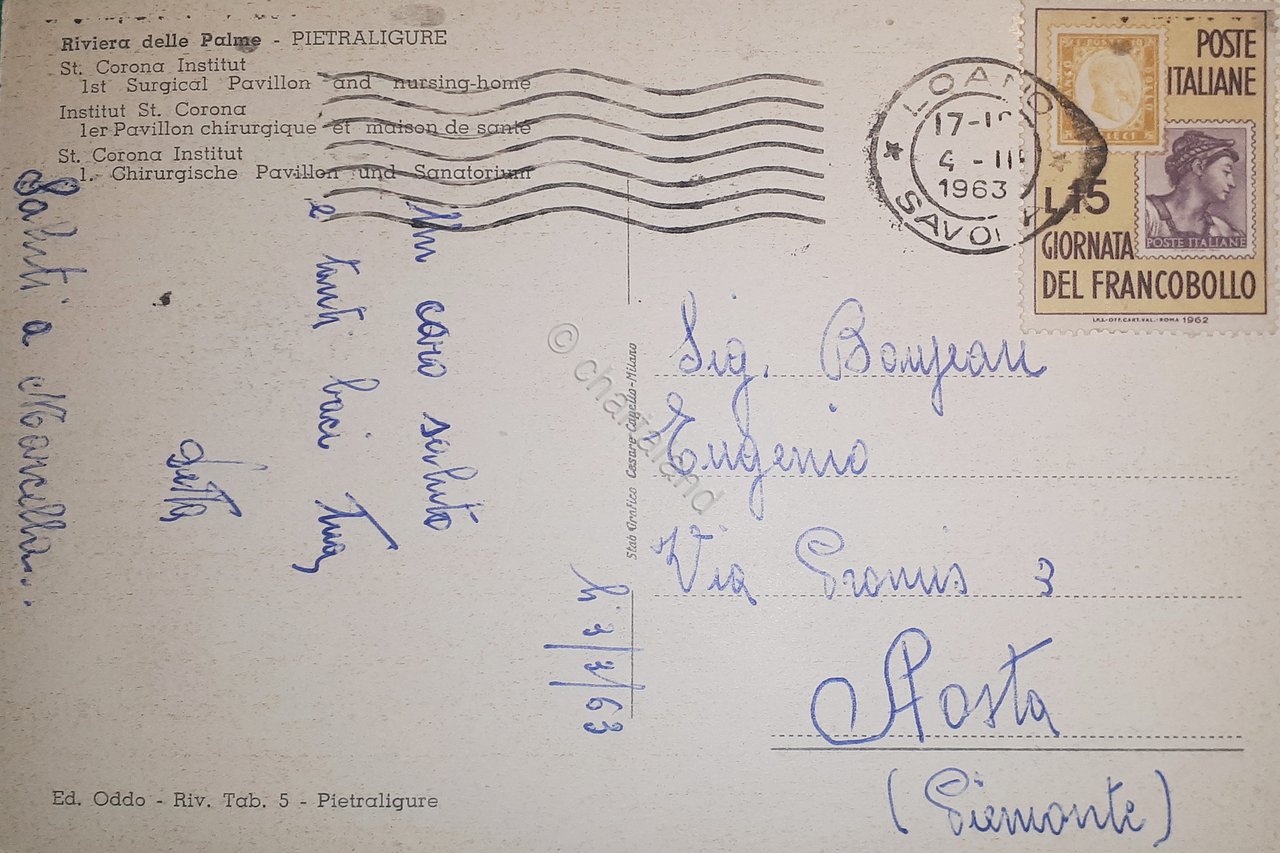 Riviera delle Palme - PIETRALIGURE
St. Corona Institut
1st Surgical Pavillon and nursing-home
Institut St. Corona
1er Pavillon chirurgique et maison de santé
St. Corona Institut
1. Chirurgische Pavillon und Sanatorium
LOANO
17-
4 - III
1963
SAVONA
POSTE
ITALIANE
POSTE ITALIANE
L.15
GIORNATA
DEL FRANCOBOLLO
I.P.S.-OFF.CART.VAL.-ROMA 1962
Un caro saluto
e tanti baci tua
Saluti a Marcella..
li 3/3/63
© chartaland
Stab Grafico Cesare Capello-Milano
Sig. Bonjean
Eugenio
Via 3
Aosta
(Piemonte)
Ed. Oddo - Riv. Tab. 5 - Pietraligure